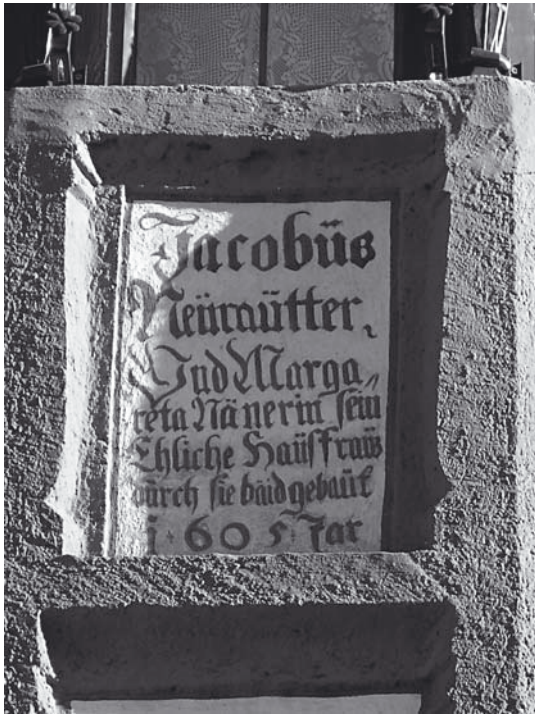 Jacobüs
Neüraütter,
Vnd Marga„
reta Nänerin sein
Ehliche Haüsfraüw
dürch sie baid gebaüt
j·605·Jar